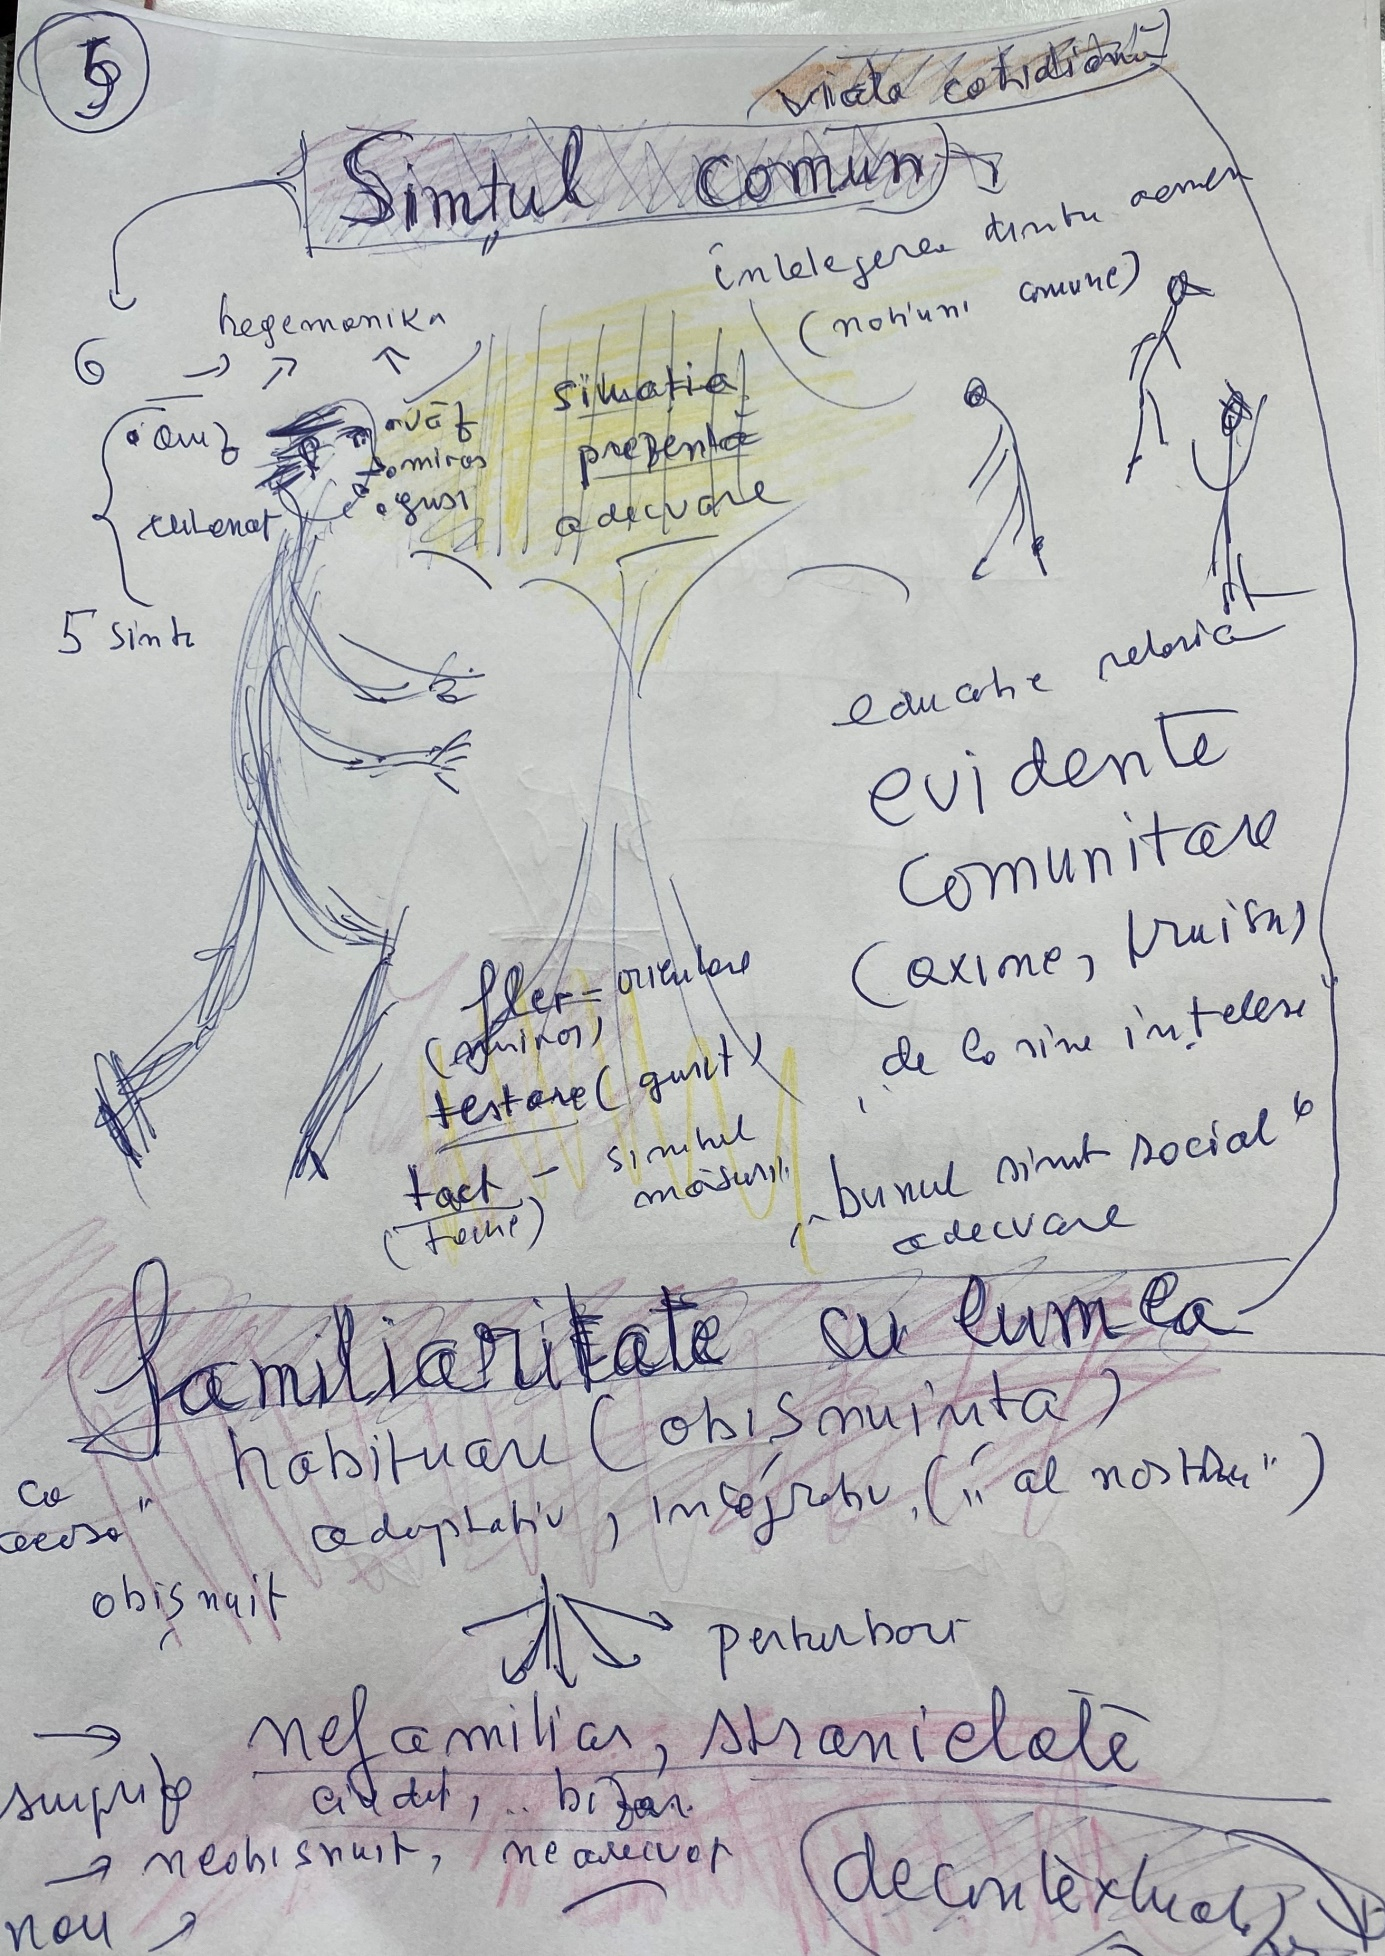 5
viața cotidiană
Simțul comun
înțelegerea dintre oameni
(noțiuni comune)
hegemonika
6
auz
văz
miros
gust
cutanat
5 simțu
situația
prezentă
adecvare
educație retorică
evidente
comunitare
(axiome, truism,
"de la sine înțelese"
"bunul simț social"
adecvare
fler = orientare
(miros)
testare (gust)
tact - simțul măsurii
Familiaritate cu lumea
habituare (obișnuința)
adaptativ, integrativ, („al nostru")
ca
acasă"
obișnuit
perturbare
→ nefamiliar, stranietate
surpriză
ciudat, .. bizar.
→ neobișnuit, neadecvat
nou
decontextual